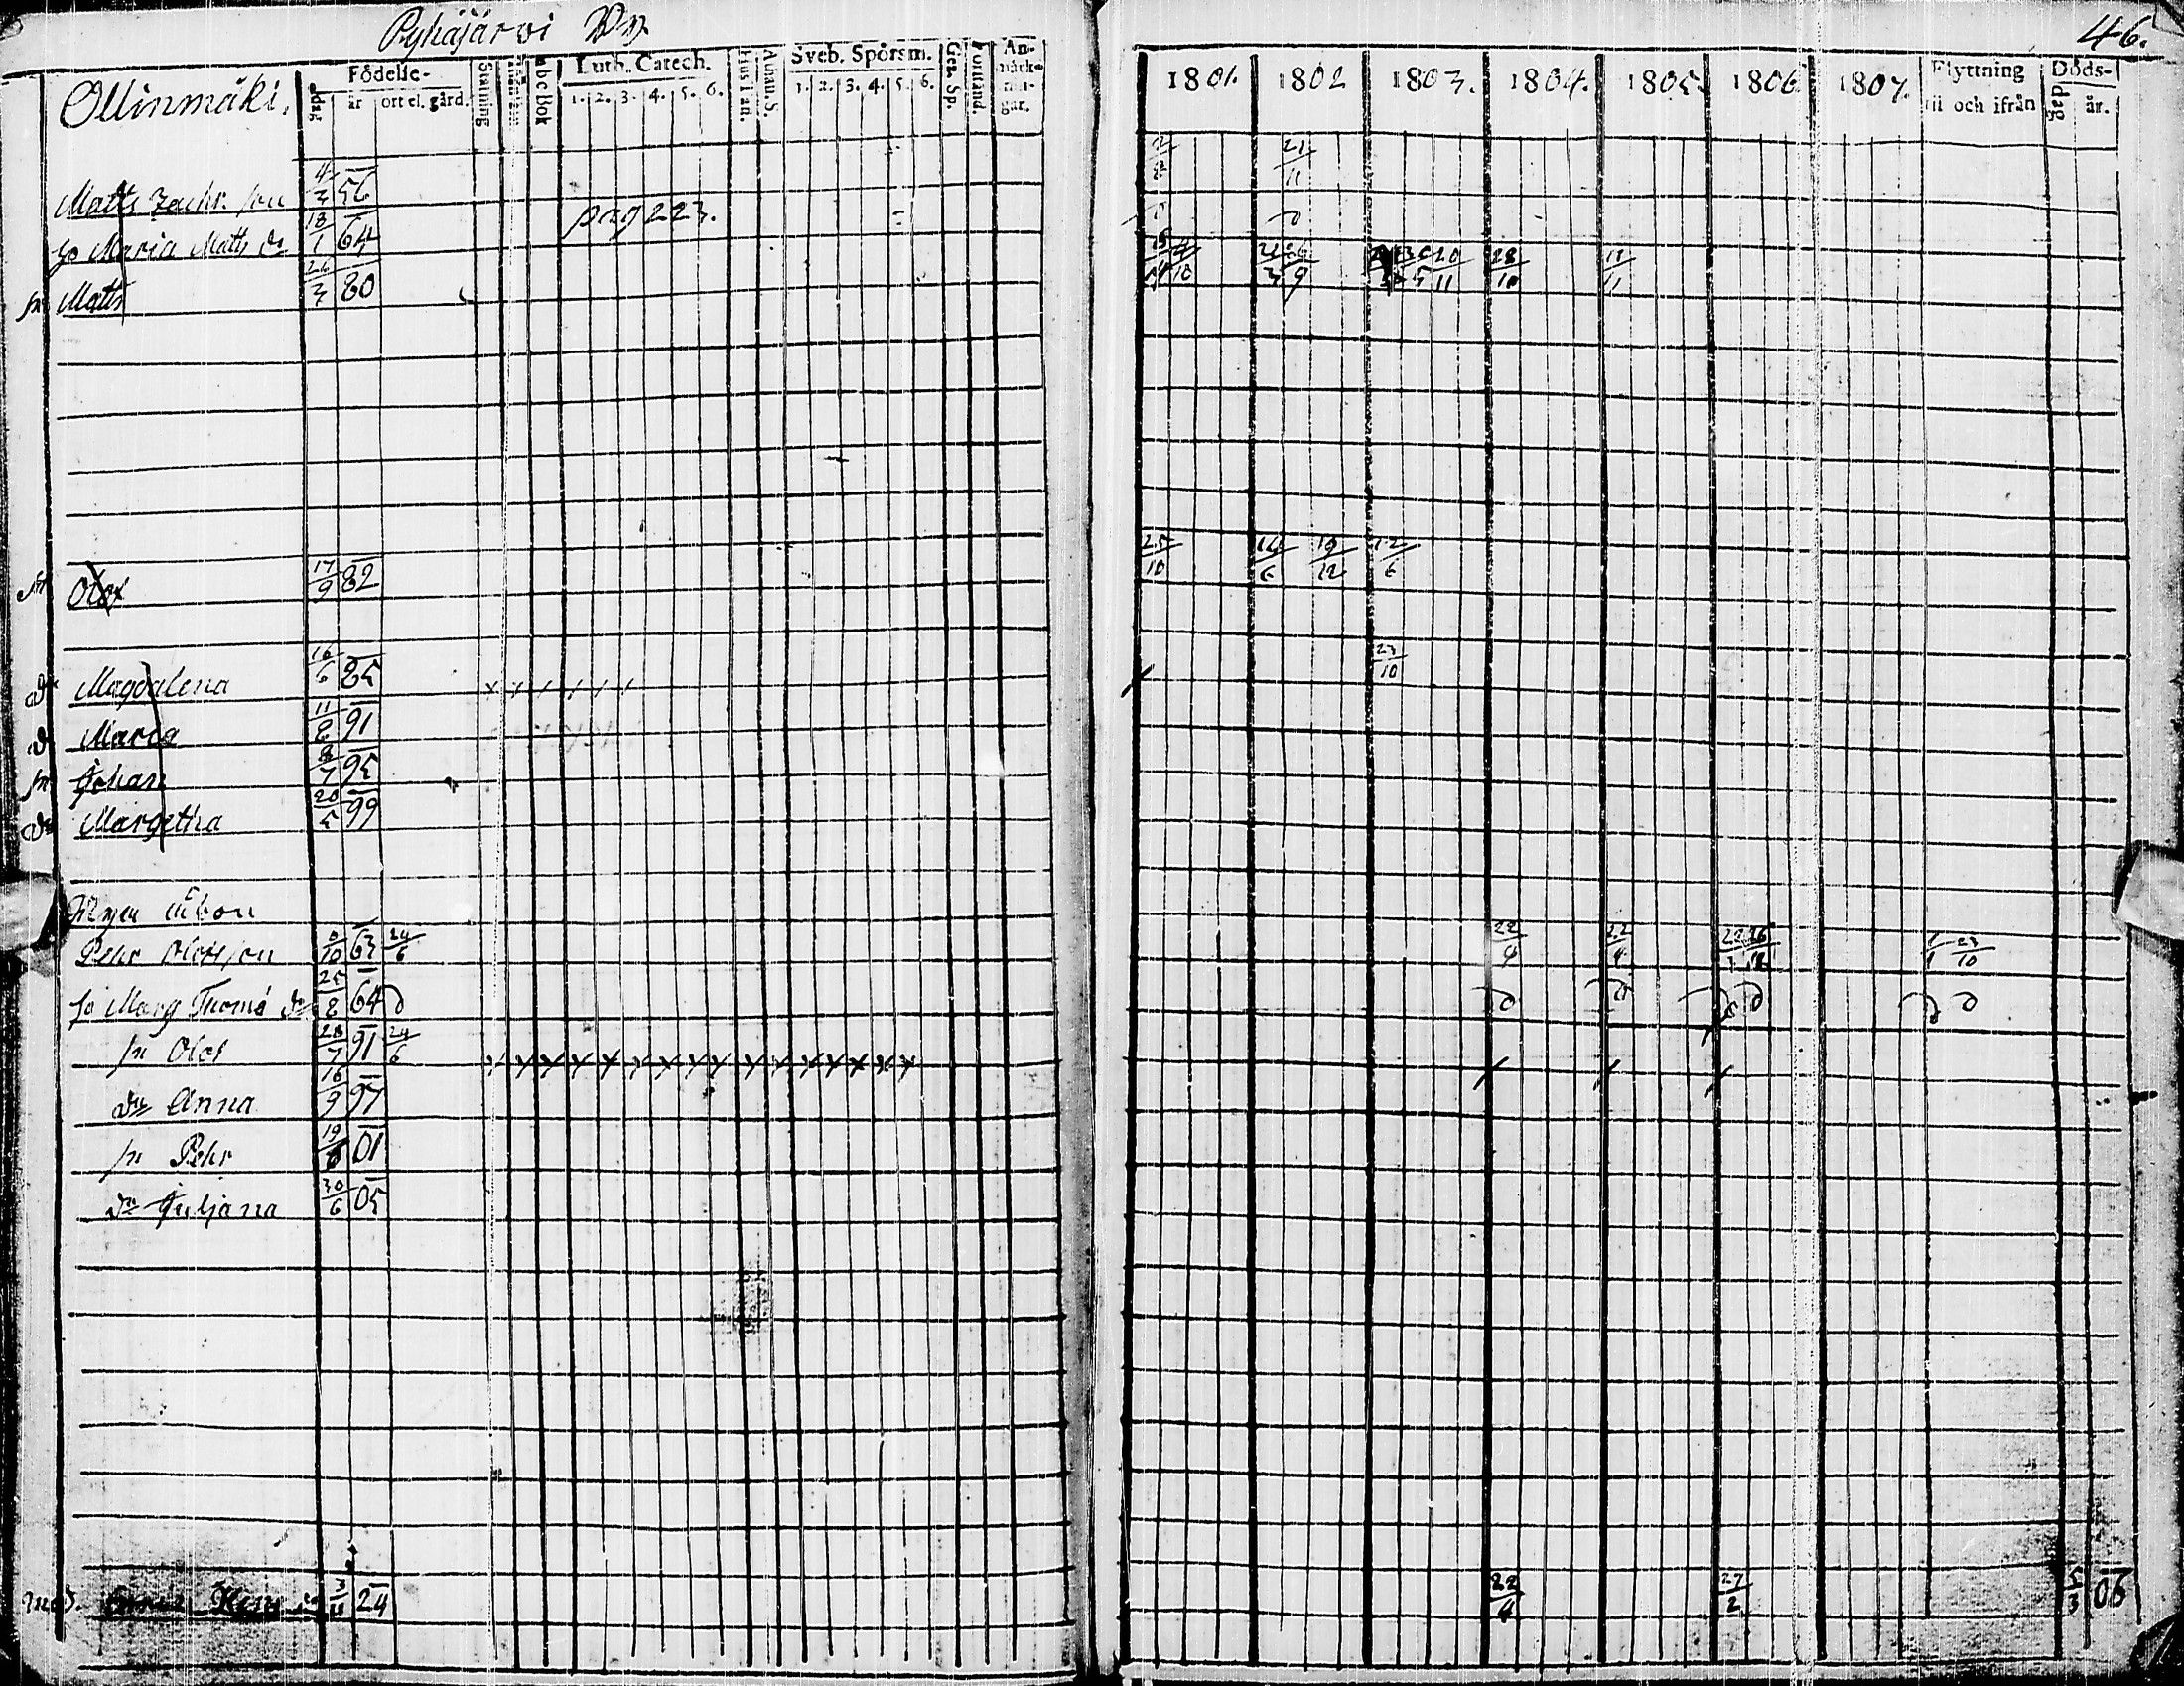 Pyhäjärvi By
46.
Ollinmäki.
Födelse-
dag år ort el. gård.
abc Bok
Luth. Catech.
1. 2. 3. 4. 5. 6.
Hus Taf.
Athan. S.
Sveb. Spörsm.
1. 2. 3. 4. 5. 6.
Gen. Sp.
Förstånd.
An-
märk-
nin-
gar.
1801. 1802 1803. 1804. 1805. 1806. 1807.
Flyttning
til och ifrån
Döds-
dag år.
2/8 21/11
Matts Zachr. son 4/3 56
pag 223.
ho Maria Matts dr 18/1 64
sn Matts 26/3 80 28/10 11/11
sn Olof 17/9 82 25/10 14/6 19/12 12/6
dr Magdalena 16/6 85 23/10
dr Maria 11/8 91
sn Johan 8/7 95
dr Margetha 20/5 99
Nyen åbon
Pehr Olofsson 8/10 63 24/6 22/4 22/4
ho Marg Thomæ dr 25/8 64
sn Olof 28/7 91 24/6
dr Anna 16/9 97
sn Pehr 19/6 01
dr Juliana 30/6 05
mod. 24 22/4 27/2 5/3 06